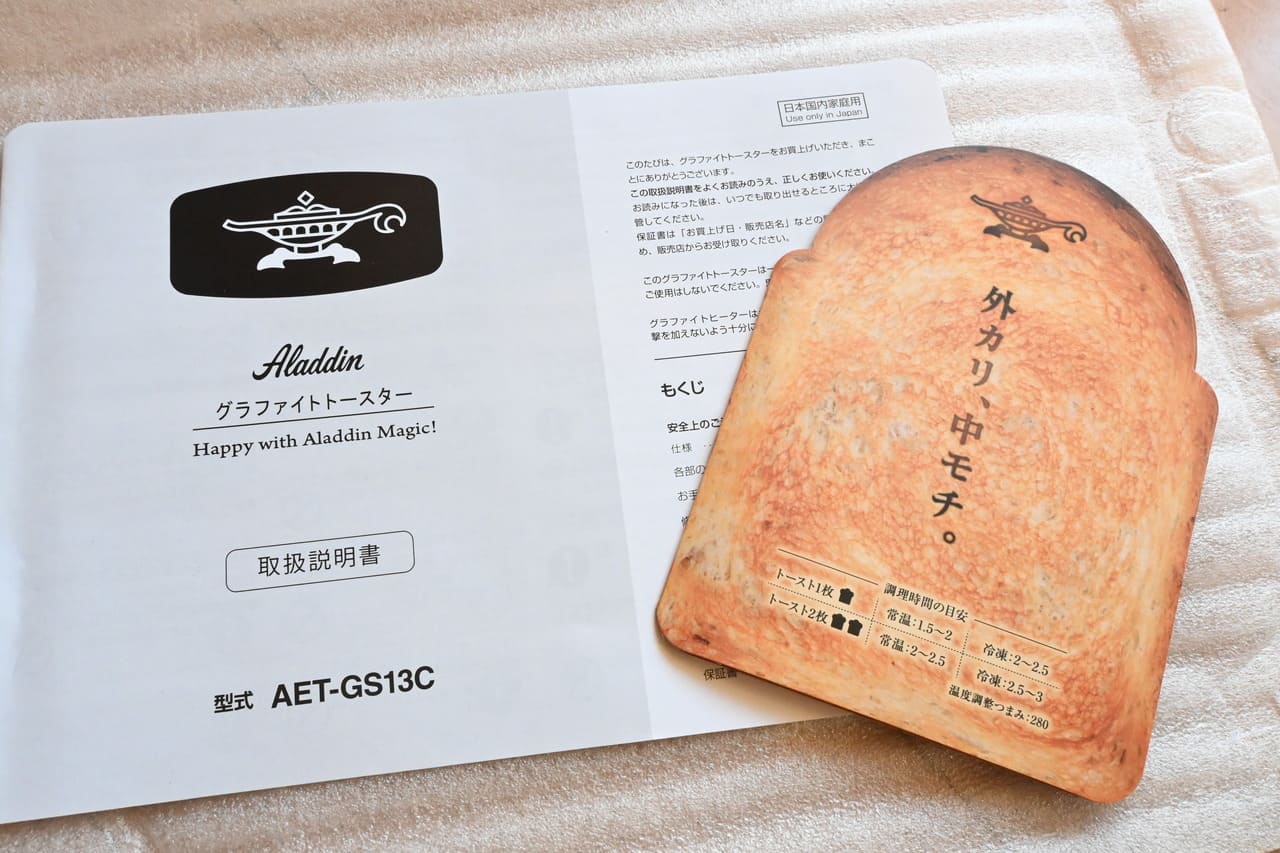 Aladdin
グラファイトトースター
Happy with Aladdin Magic!
取扱説明書
型式 AET-GS13C
日本国内家庭用
Use only in Japan
このたびは、グラファイトトースターをお買上げいただき、まこ
とにありがとうございます。
この取扱説明書をよくお読みのうえ、正しくお使いください。
お読みになった後は、いつでも取り出せるところに大
管してください。
保証書は「お買上げ日・販売店名」などの
め、販売店からお受け取りください。
このグラファイトトースターは
ご使用はしないでください。
グラファイトヒーターは
撃を加えないよう十分に
もくじ
安全上のご
仕様
各部の
お手
保証書
外カリ、中モチ。
調理時間の目安
トースト1枚 常温:1.5〜2 冷凍:2〜2.5
トースト2枚 常温:2〜2.5 冷凍:2.5〜3
温度調整つまみ:280